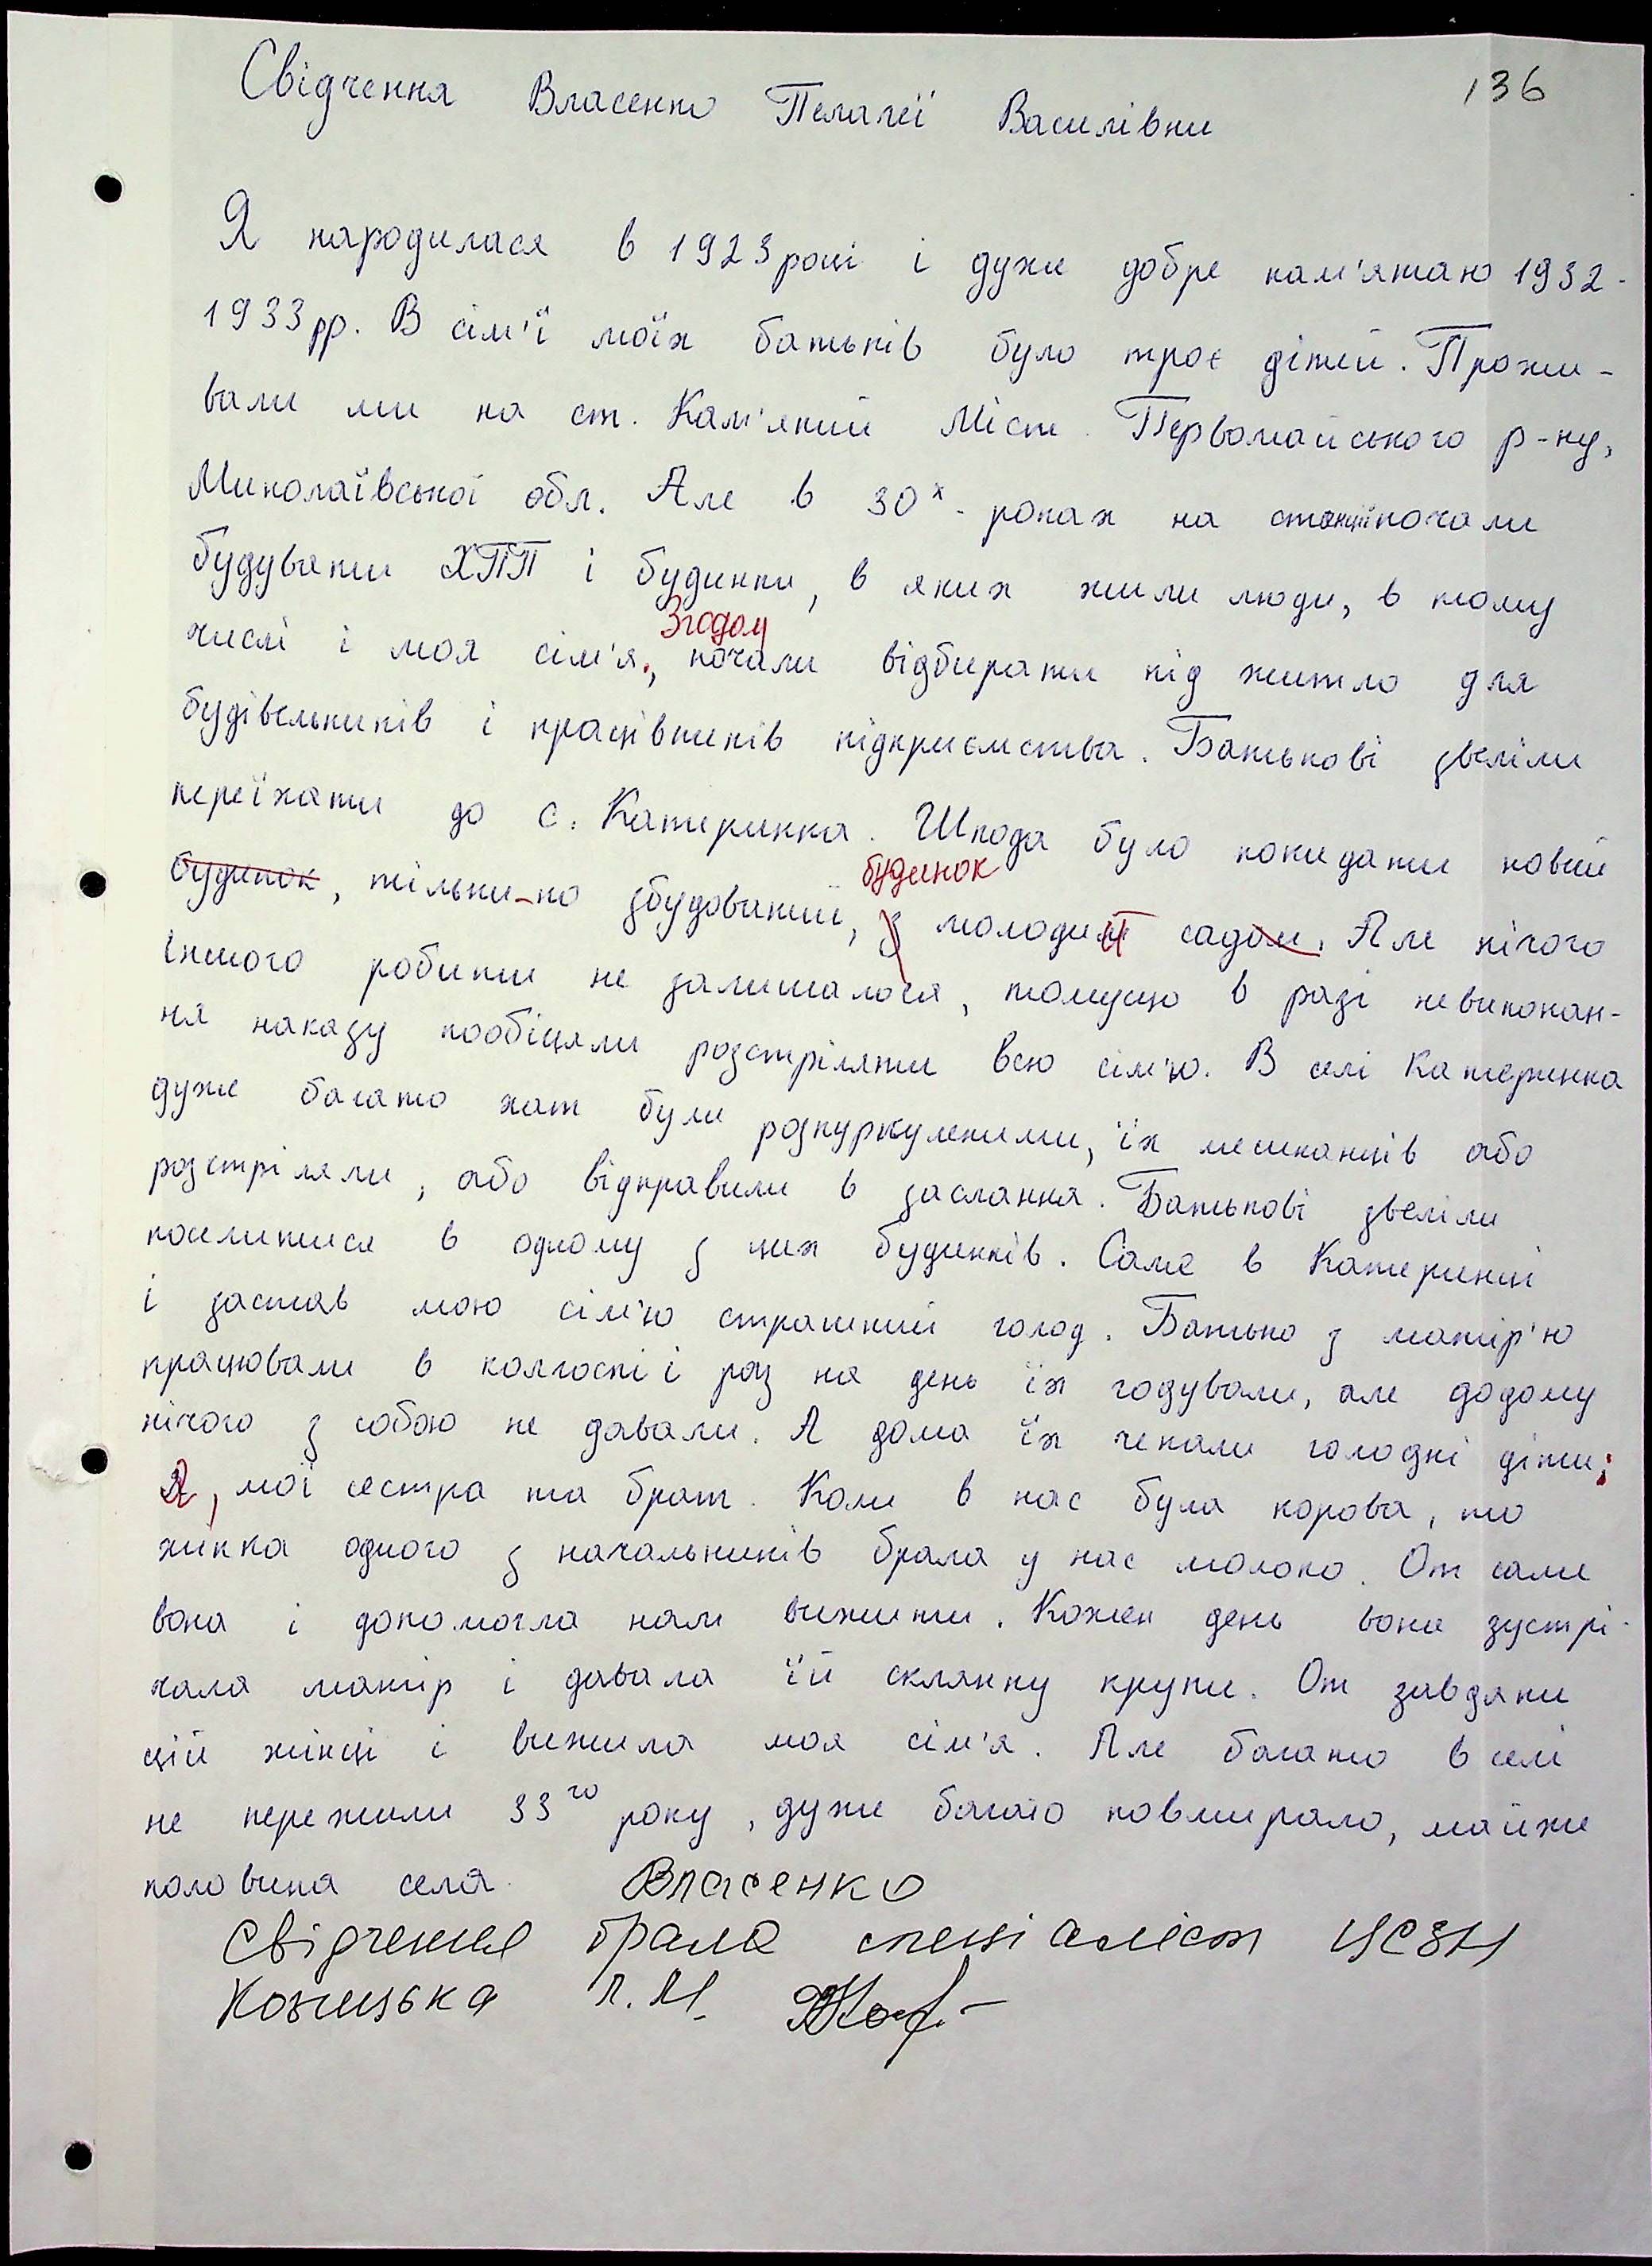 136
Свідчення Власенко Пелагеї Василівни
Я народилася в 1923 році і дуже добре пам'ятаю 1932-
1933 рр. В сім'ї моїх батьків було троє дітей. Прожи-
вали ми на ст. Кам'яний Міст Первомайського р-ну,
Миколаївської обл. Але в 30х - роках на станції почали
будувати ХПП і будинки, в яких жили люди, в тому
Згодом
числі і моя сім'я., почали відбирати під житло для
будівельників і працівників підприємства. Батькові звеліли
переїхати до с. Катеринка. Шкода було покидати новий
будинок
будинок, тільки-но збудований, з молодий садом. Але нічого
іншого робити не залишалося, томущо в разі невиконан-
ня наказу пообіцяли розстріляти всю сім'ю. В селі Катеринка
дуже багато хат були розкуркуленими, їх мешканців або
розстріляли, або відправили в заслання. Батькові звеліли
поселитися в одному з цих будинків. Саме в Катеринці
і застав мою сім'ю страшний голод. Батько з матір'ю
працювали в колгоспі і раз на день їх годували, але додому
нічого з собою не давали. А дома їх чекали голодні діти:
Я, мої сестра та брат. Коли в нас була корова, то
жінка одного з начальників брала у нас молоко. От саме
вона і допомогла нам вижити. Кожен день вона зустрі-
чала матір і давала їй склянку крупи. От завдяки
цій жінці і вижила моя сім'я. Але багато в селі
не пережили 33го року, дуже багато повмирало, майже
половина села. Власенко
Свідчення брала спеціаліст ЦСЗН
Козицька Л. М.